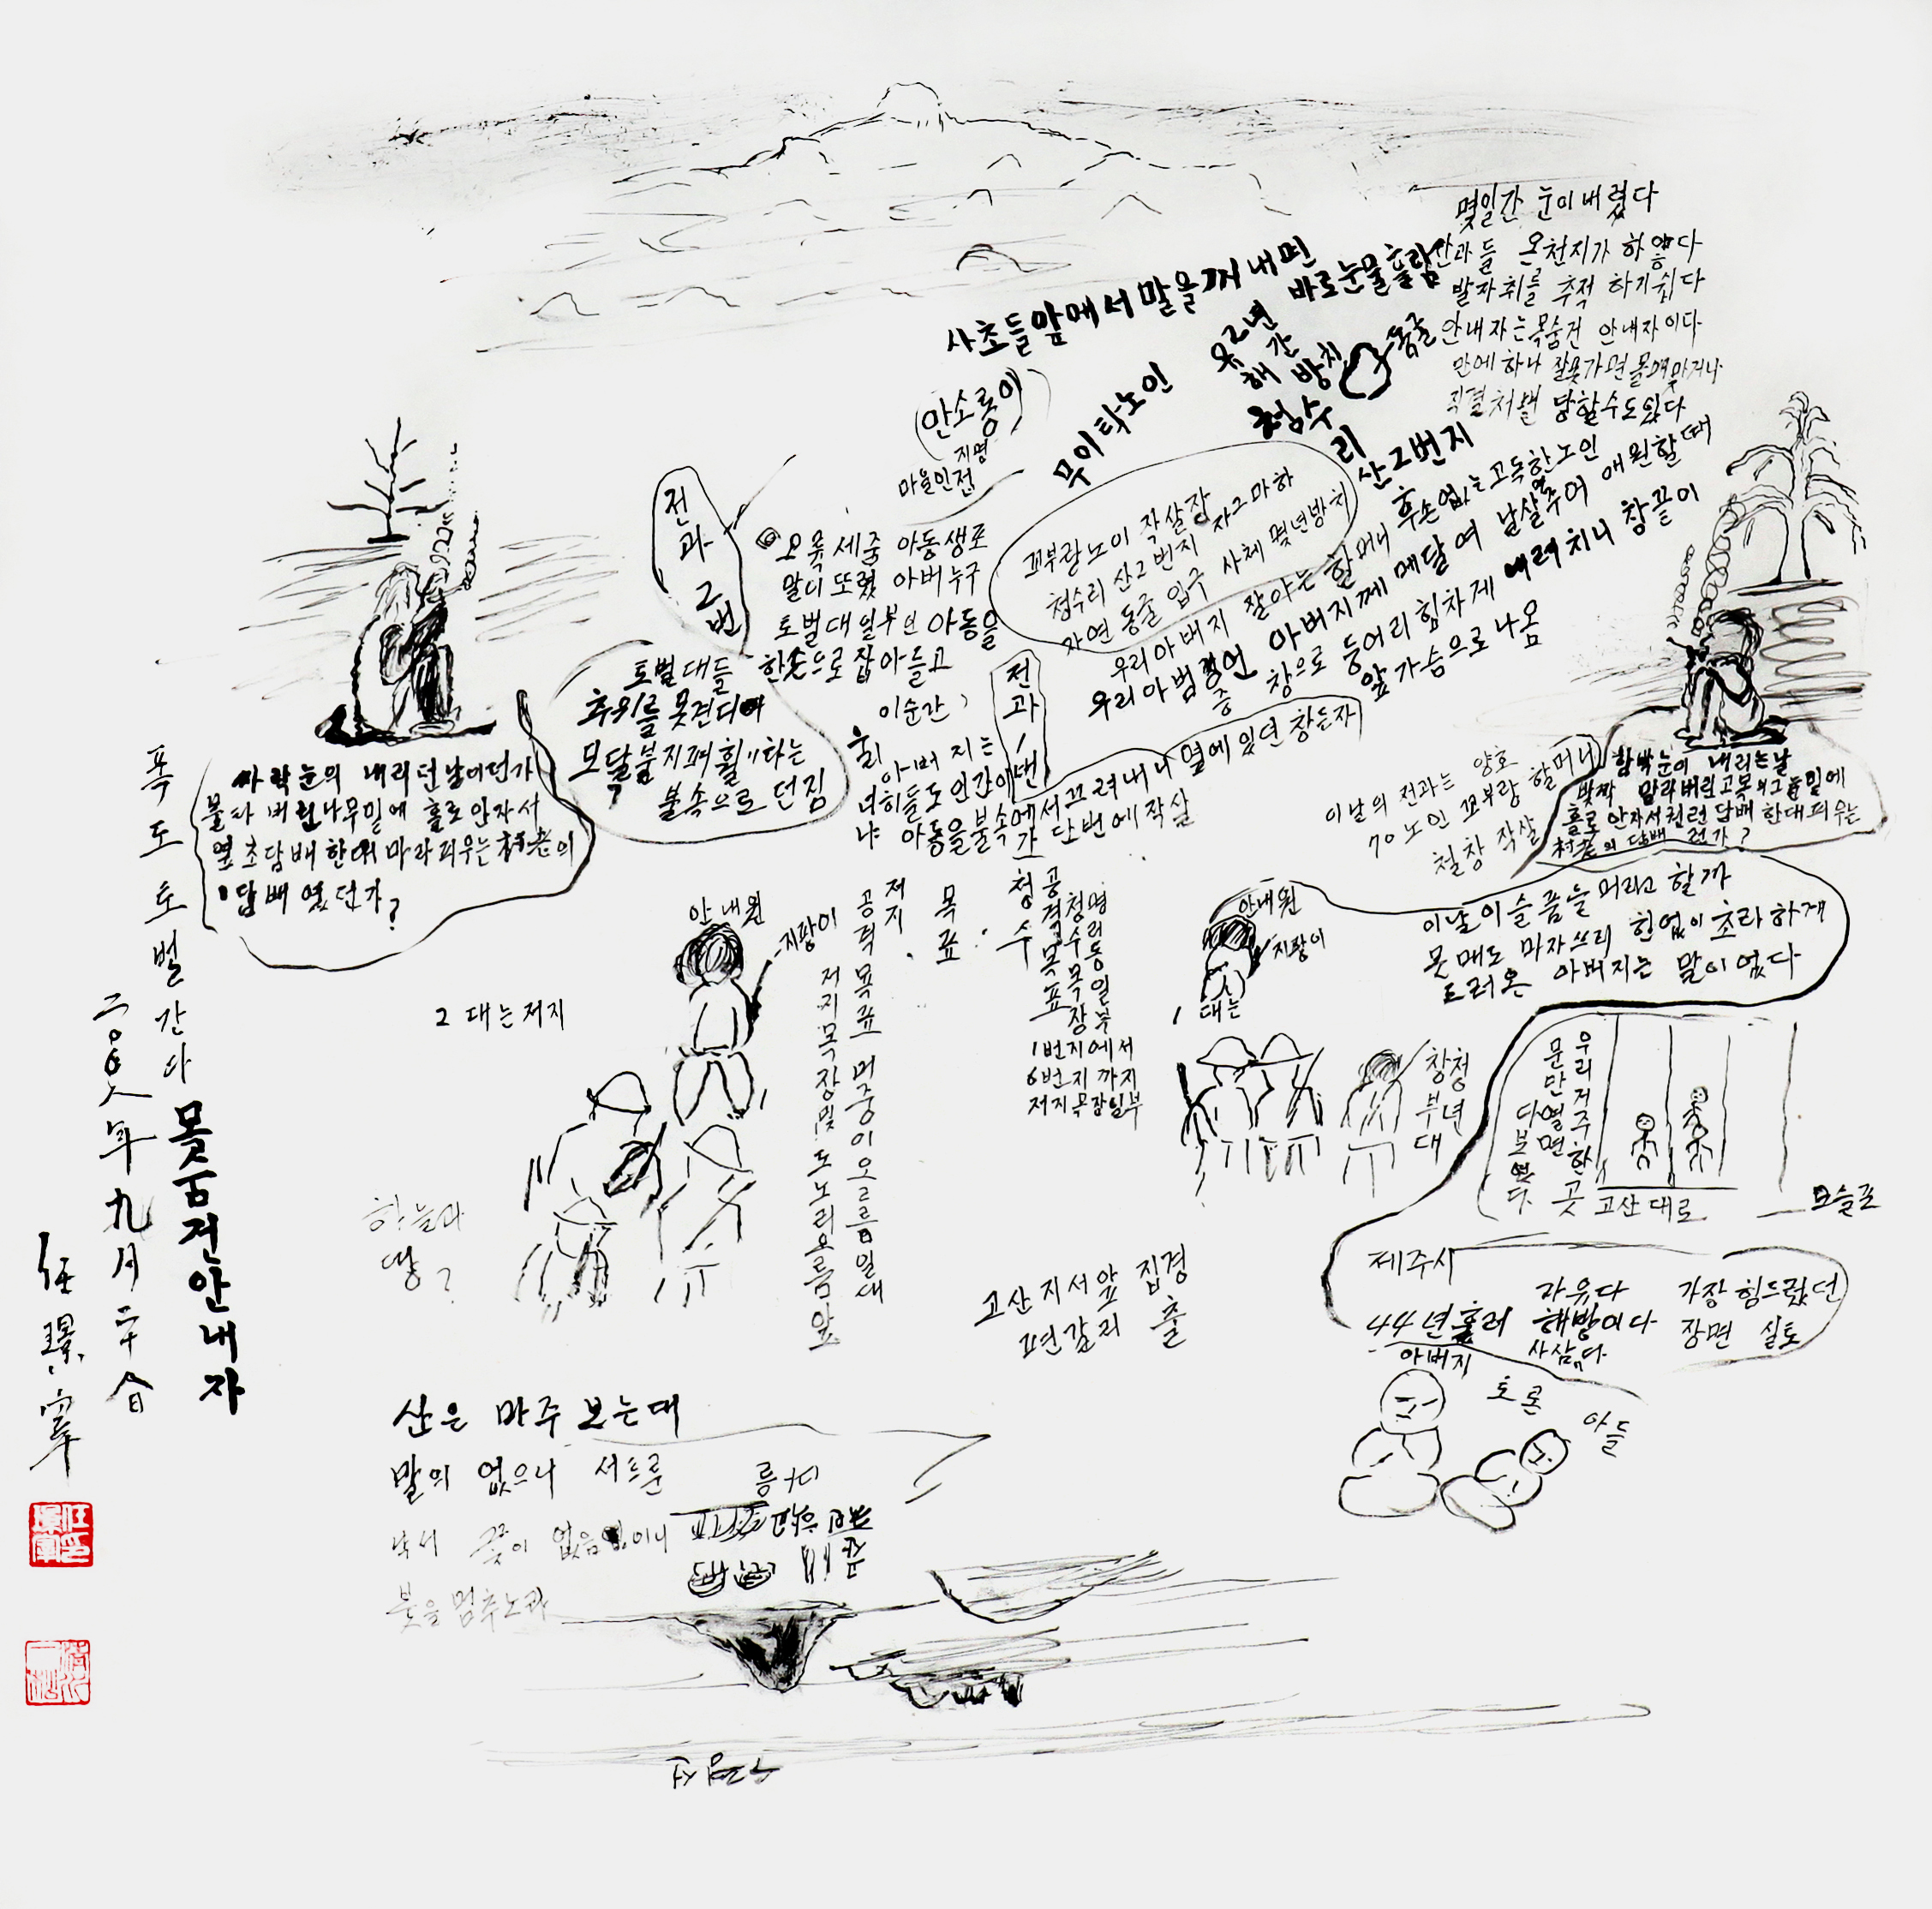 몇일간 눈이 내렸다
산과 들 온천지가 하얗다
발자취를 추적 하기 쉽다
안내자는 목숨건 안내자이다
만에 하나 잘못가면 몰매맞거나
직결처분 당할수도 있다
사초들 앞에서 말을 꺼내면 바로 눈물흘림
(만소롱이)
지명
마을인접
무이타노인
2년간
방치
청수리 산2번지
전과 2번
오육세줌 아동생포
말이 또렸 아버누구
토벌대 일부인 아동을
한손으로 잡아들고
이순간
아버지는
너히들도 인간이냐
아동을 불속에서 끄려내니 옆에 있던 창든자가 단번에 작살
토벌대들
추위를 못견디어
모닥불 지펴 훨"타는
불속으로 던짐
꼬부랑노이 작살장
청수리 산2번지 자그마하
자연동굴 입구 사체 몇년방치
전과 1번
우리아버지 잘아는 할머니 후손없는 고독한 노인
아버지께 매달여 날살주어 애원할때
창으로 등어리 힘차게 내려치니 창끝이
앞가슴으로 나옴
이날의 전과는 양호
70노인 꼬부랑 할머니
철창 작살
싸락눈의 내리던날이던가
불타 버린나무밑에 홀로안자서
엽초담배 한대 마라피우는 村老의
담배 였던가?
함박눈이 내리는날
바짝 말라버린고목의그늘밑에
홀로 안자서 처련 담배 한대피우는
村老의 담배 런가?
이날 이 슬픔을 머라고 할까
몬매도 마자쓰리 한없이 초라하게
도러온 아버지는 말이 었다
안내원
지팡이
2 대는 저지
목표
저지
공격 목표 머중이오르름일대
저지목장및 도노리오름앞
청수
공격목표
청수목장
명리동일부
1번지에서
6번지까지
저지목장일부
안내원
지팡이
1 대는
창부대
청년
우리저주하곳
문만열면
다보였다
고산대로
모슬포
제주시
44년흘러
자유다
해방이다
사삼"다
가장 힘드렀던
장면 실토
아버지
토론
아들
고산지서앞 집결
편갈리 출
하늘과
땅?
산은 마주 보는대
말의 없으니 서트룬
낙서 끝이 없음 이니
붓을 멈추노라
수월산
폭도 토벌간다 몯숨건안내자
二〇〇八年 九月 二十 日
任璟宰